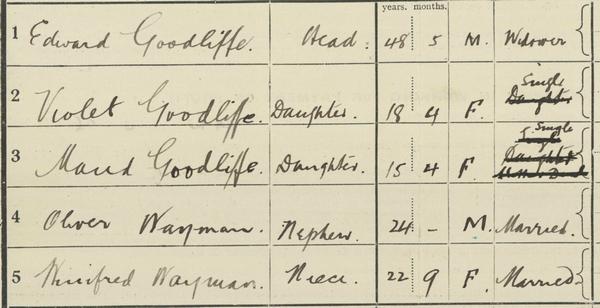 years. months.
1 Edward Goodliffe. Head. 48 5 M. Widower
2 Violet Goodliffe. Daughter. 18 4 F. Single Daughter
3 Maud Goodliffe. Daughter. 15 4 F. Single Daughter
4 Oliver Wayman. Nephew. 24 - M. Married.
5 Winifred Wayman. Niece. 22 9 F. Married.